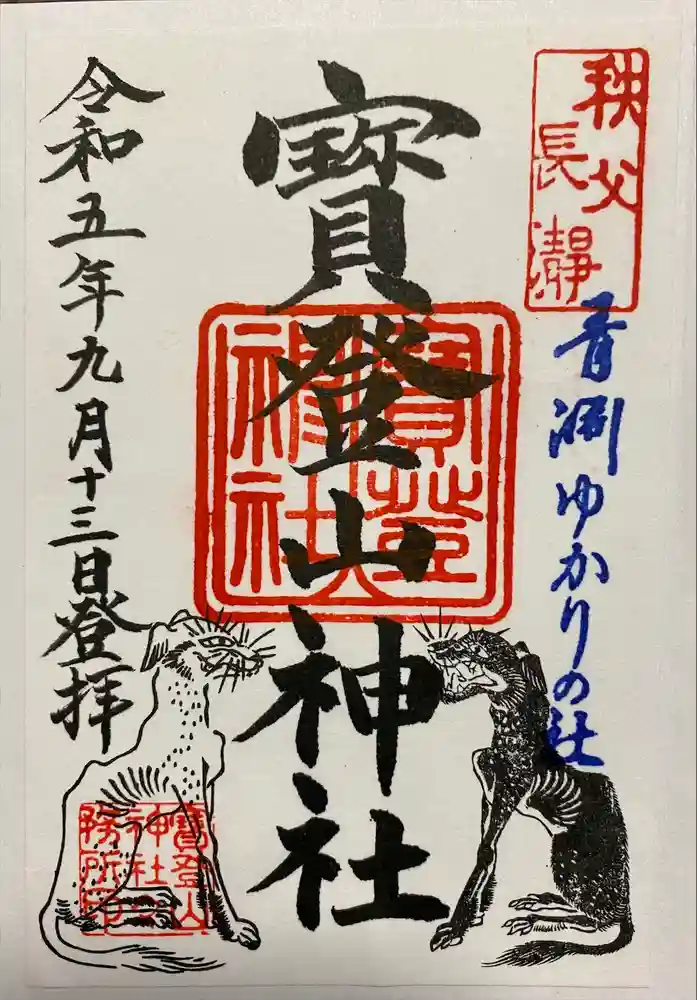 秩父
長瀞
青淵ゆかりの社
寳登山神社
寳登
山神
社
令和五年九月十三日登拝
寳登山
神社
務所印